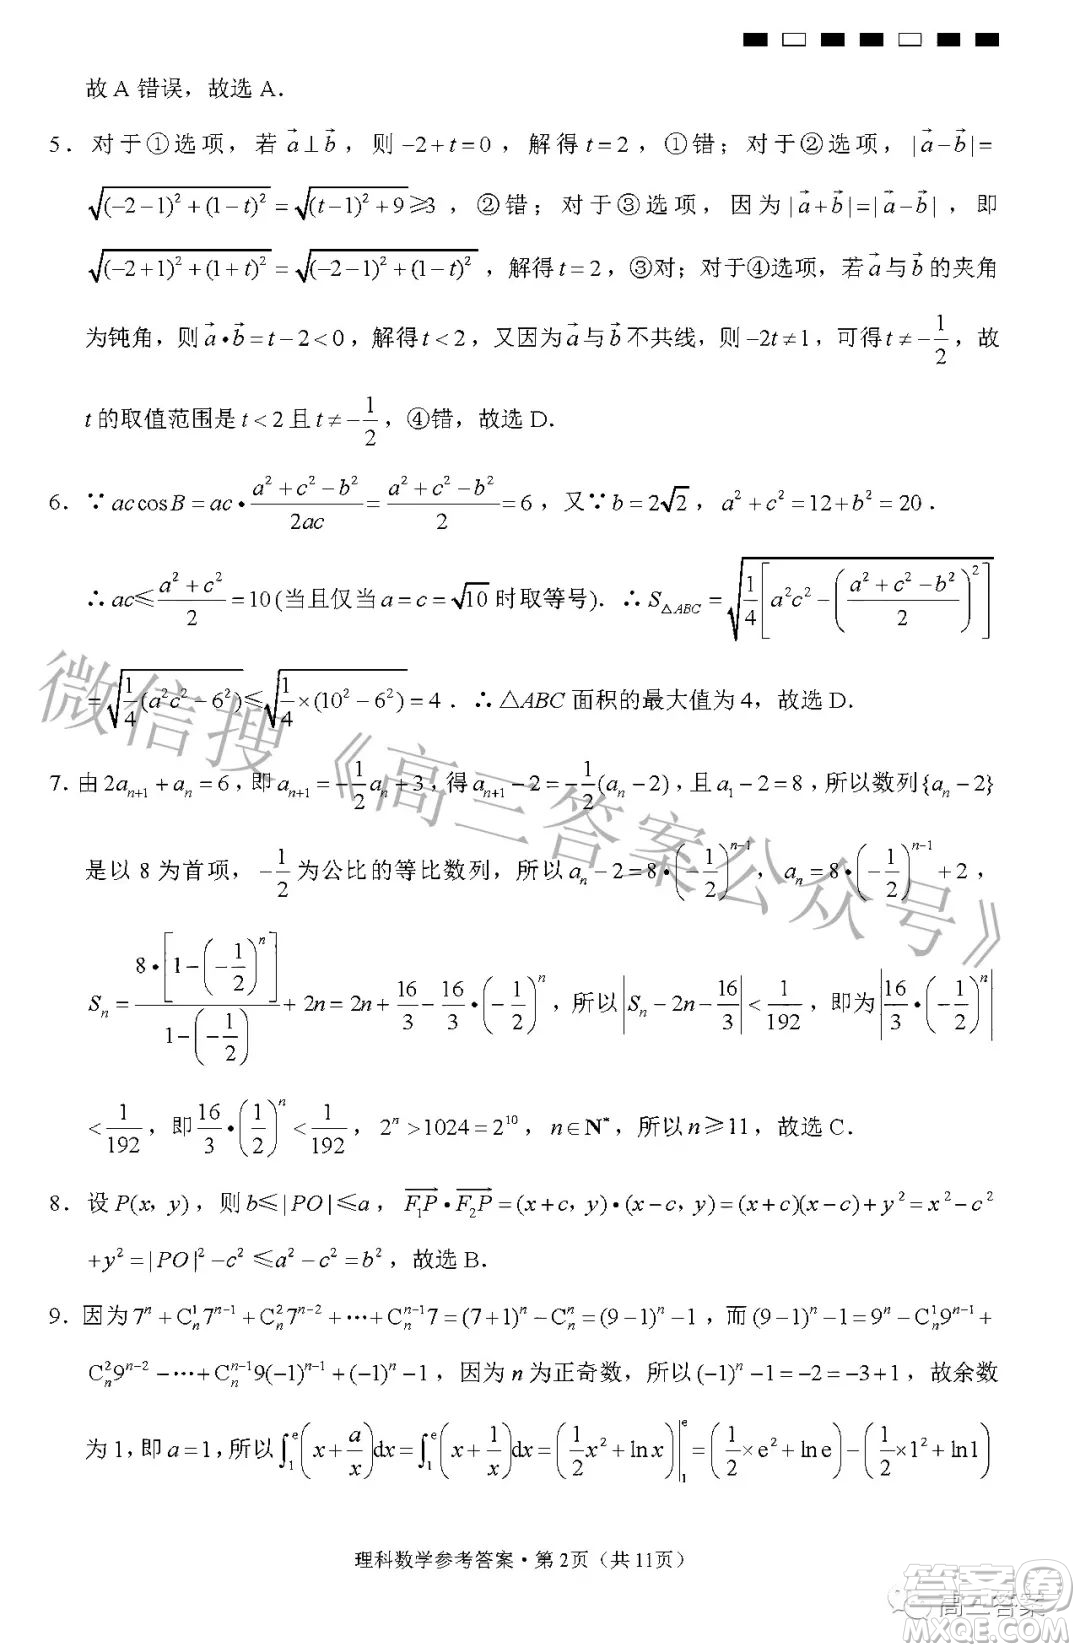 故 A 错误，故选 A．
5．对于①选项，若 $\vec{a}\perp\vec{b}$，则 $-2+t=0$，解得 $t=2$，①错；对于②选项，$|\vec{a}-\vec{b}|=$
$\sqrt{(-2-1)^2+(1-t)^2}=\sqrt{(t-1)^2+9}\geqslant 3$，②错；对于③选项，因为 $|\vec{a}+\vec{b}|=|\vec{a}-\vec{b}|$，即
$\sqrt{(-2+1)^2+(1+t)^2}=\sqrt{(-2-1)^2+(1-t)^2}$，解得 $t=2$，③对；对于④选项，若 $\vec{a}$ 与 $\vec{b}$ 的夹角
为钝角，则 $\vec{a}\cdot\vec{b}=t-2<0$，解得 $t<2$，又因为 $\vec{a}$ 与 $\vec{b}$ 不共线，则 $-2t\neq 1$，可得 $t\neq-\frac{1}{2}$，故
$t$ 的取值范围是 $t<2$ 且 $t\neq-\frac{1}{2}$，④错，故选 D．
6．∵ $ac\cos B=ac\cdot\frac{a^2+c^2-b^2}{2ac}=\frac{a^2+c^2-b^2}{2}=6$，又∵ $b=2\sqrt{2}$，$a^2+c^2=12+b^2=20$．
∴ $ac\leqslant\frac{a^2+c^2}{2}=10$ (当且仅当 $a=c=\sqrt{10}$ 时取等号)．∴ $S_{\triangle ABC}=\sqrt{\frac{1}{4}\left[a^2c^2-\left(\frac{a^2+c^2-b^2}{2}\right)^2\right]}$
$=\sqrt{\frac{1}{4}(a^2c^2-6^2)}\leqslant\sqrt{\frac{1}{4}\times(10^2-6^2)}=4$．∴ △ABC 面积的最大值为 4，故选 D．
7．由 $2a_{n+1}+a_n=6$，即 $a_{n+1}=-\frac{1}{2}a_n+3$，得 $a_{n+1}-2=-\frac{1}{2}(a_n-2)$，且 $a_1-2=8$，所以数列 $\{a_n-2\}$
是以 8 为首项，$-\frac{1}{2}$ 为公比的等比数列，所以 $a_n-2=8\cdot\left(-\frac{1}{2}\right)^{n-1}$，$a_n=8\cdot\left(-\frac{1}{2}\right)^{n-1}+2$，
$S_n=\frac{8\cdot\left[1-\left(-\frac{1}{2}\right)^n\right]}{1-\left(-\frac{1}{2}\right)}+2n=2n+\frac{16}{3}-\frac{16}{3}\cdot\left(-\frac{1}{2}\right)^n$，所以 $\left|S_n-2n-\frac{16}{3}\right|<\frac{1}{192}$，即为 $\left|\frac{16}{3}\cdot\left(-\frac{1}{2}\right)^n\right|$
$<\frac{1}{192}$，即 $\frac{16}{3}\cdot\left(\frac{1}{2}\right)^n<\frac{1}{192}$，$2^n>1024=2^{10}$，$n\in\mathbf{N}^*$，所以 $n\geqslant 11$，故选 C．
8．设 $P(x,y)$，则 $b\leqslant|PO|\leqslant a$，$\overrightarrow{F_1P}\cdot\overrightarrow{F_2P}=(x+c,y)\cdot(x-c,y)=(x+c)(x-c)+y^2=x^2-c^2$
$+y^2=|PO|^2-c^2\leqslant a^2-c^2=b^2$，故选 B．
9．因为 $7^n+C_n^1 7^{n-1}+C_n^2 7^{n-2}+\cdots+C_n^{n-1}7=(7+1)^n-C_n^n=(9-1)^n-1$，而 $(9-1)^n-1=9^n-C_n^1 9^{n-1}+$
$C_n^2 9^{n-2}-\cdots+C_n^{n-1}9(-1)^{n-1}+(-1)^n-1$，因为 $n$ 为正奇数，所以 $(-1)^n-1=-2=-3+1$，故余数
为 1，即 $a=1$，所以 $\int_1^e\left(x+\frac{a}{x}\right)dx=\int_1^e\left(x+\frac{1}{x}\right)dx=\left(\frac{1}{2}x^2+\ln x\right)\Big|_1^e=\left(\frac{1}{2}\times e^2+\ln e\right)-\left(\frac{1}{2}\times 1^2+\ln 1\right)$
理科数学参考答案·第 2页（共 11页）
微信搜《高三答案公众号》
答案圈
高三答案
MXQE.COM